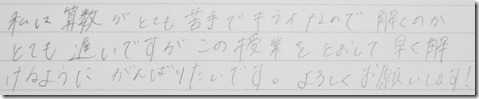 私は算数がとても苦手でキライなので解くのが
とても遅いですがこの授業をとおして早く解
けるようにがんばりたいです。よろしくお願いします!